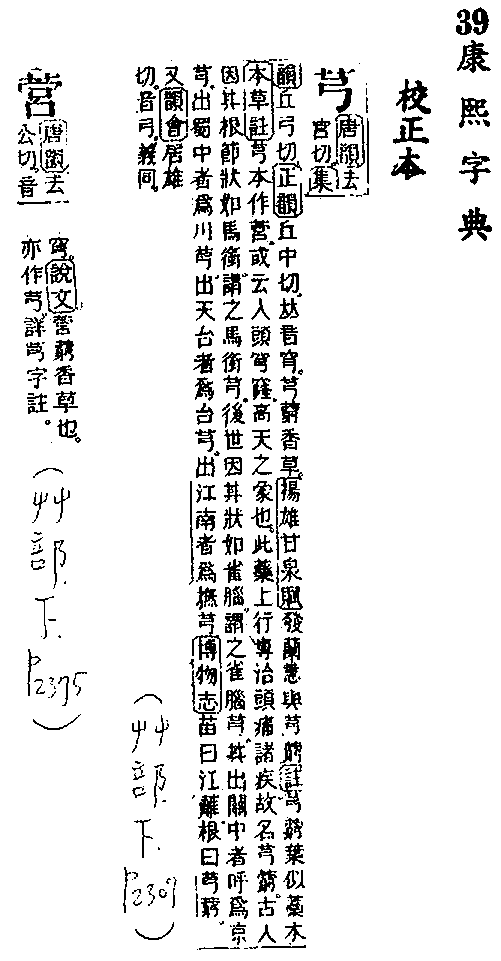 39康熙字典
校正本
芎 唐韻去宮切集
韻丘弓切正韻丘中切𠀤音穹芎藭香草揚雄甘泉賦發蘭蕙與芎藭註芎藭葉似藁本
本草註芎本作营或云人頭穹窿高天之象也此藥上行專治頭痛諸疾故名芎藭古人
因其根節狀如馬銜謂之馬銜芎後世因其狀如雀腦謂之雀腦芎其出關中者呼爲京
芎出蜀中者爲川芎出天台者爲台芎出江南者爲撫芎博物志苗曰江蘺根曰芎藭
又韻會居雄
切音弓義同
(艸部下P2309)
营 唐韻去公切音
穹說文营藭香草也
亦作芎詳芎字註。
(艸部下P2375)